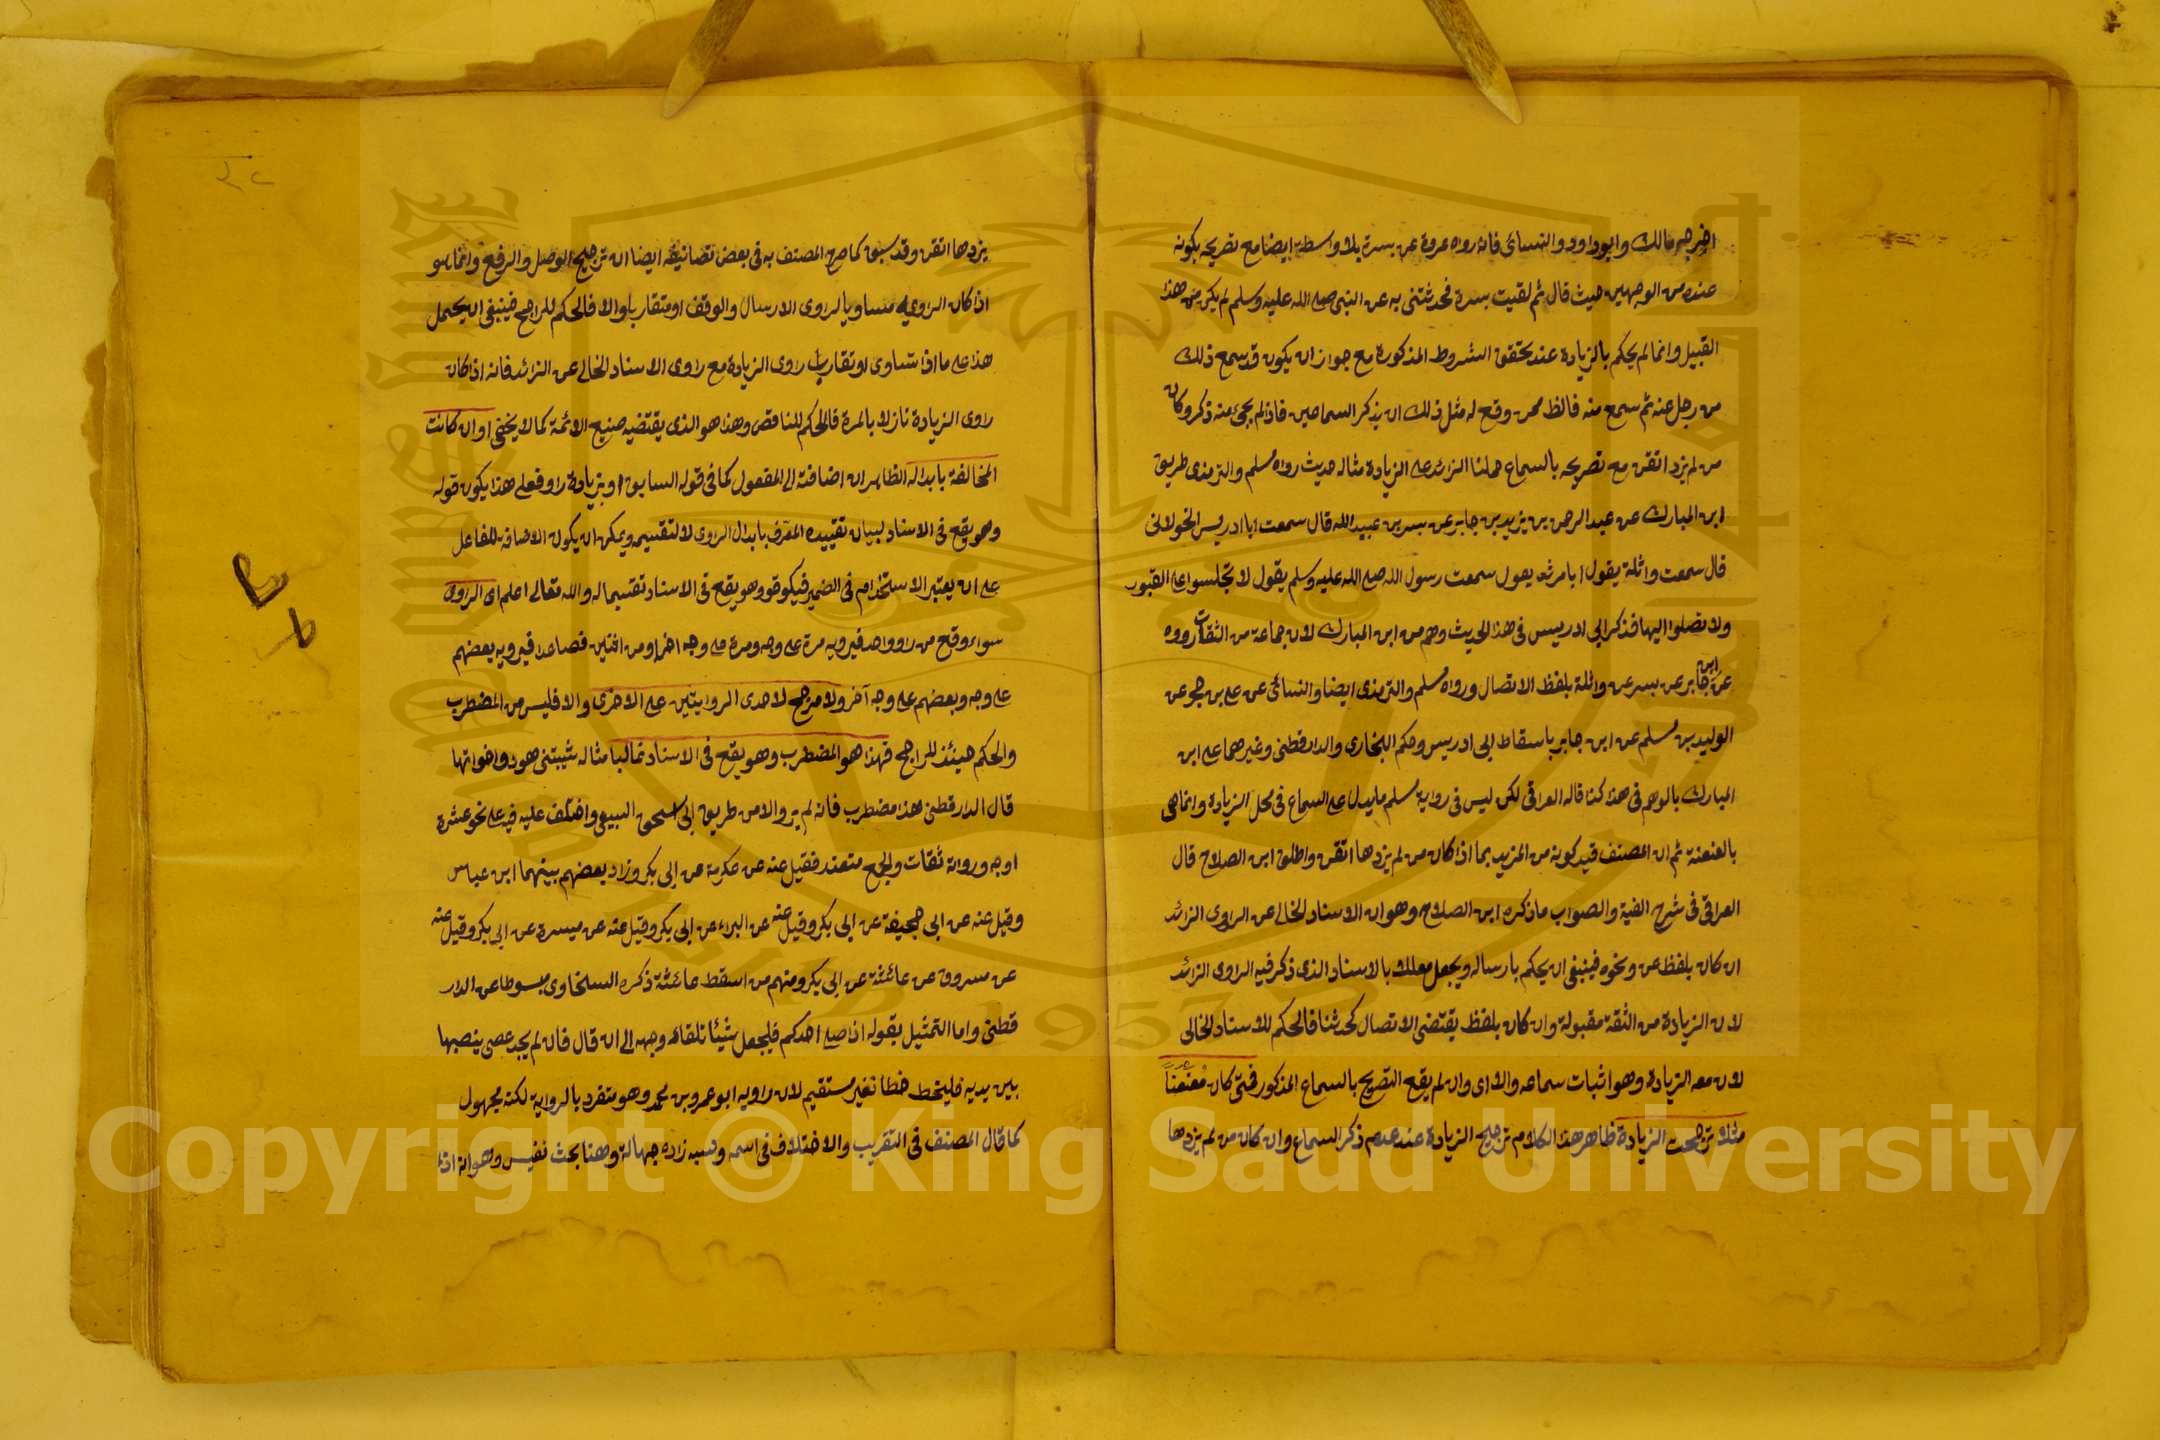 اخرجه مالك وابوداود والنسائى فانه رواه عروة عن بسرة بلا واسطة ايضا مع تصريحه بكونه
عنده من الوجهين حيث قال ثم لقيت بسرة فحدثتنى به عن النبى صلى الله عليه وسلم لم يكن من هذا
القبيل وانما لم يحكم بالزيادة عند تحقق الشروط المذكورة مع جواز ان يكون قد سمع ذلك
من رجل عنه ثم سمع منه فالظ ممن وقع له مثل ذلك ان يذكر السماعين فاذ لم يجئ عنه ذكر وكان
من لم يزد اتقن مع تصريحه بالسماع حملنا الزائد على الزيادة مثاله حديث رواه مسلم والترمذى طريق
ابن المبارك عن عبد الرحمن بن يزيد بن جابر عن بسر بن عبيد الله قال سمعت ابا ادريس الخولانى
قال سمعت واثلة يقول ابا مرثد يقول سمعت رسول الله صلى الله عليه وسلم يقول لا تجلسوا على القبور
ولا تصلوا اليها فذكر ابى ادريس فى هذا الحديث وهم من ابن المبارك لان جماعة من الثقات رووه
عن ابن جابر عن بسر عن واثلة بلفظ الاتصال ورواه مسلم والترمذى ايضا والنسائى عن على بن حجر عن
الوليد بن مسلم عن ابن جابر باسقاط ابى ادريس وحكم البخارى والدارقطنى وغيرهما على ابن
المبارك بالوهم فى هذا كذا قاله العراقى لكن ليس فى رواية مسلم ما يدل على السماع فى محل الزيادة وانما هى
بالعنعنة ثم ان المصنف قيد كونه من المزيد بما اذا كان من لم يزدها اتقن واطلق ابن الصلاح قال
العراقى فى شرح الفية والصواب ما ذكره ابن الصلاح وهو ان الاسناد الخالى عن الراوى الزائد
ان كان بلفظ عن ونحوه فينبغى ان يحكم بارساله ويجعل معللا بالاسناد الذى ذكر فيه الراوى الزائد
لان الزيادة من الثقة مقبولة وان كان بلفظ يقتضى الاتصال كحدثنا فالحكم للاسناد الخالى
لان معه الزيادة وهو اثبات سماعه والا اى وان لم يقع التصريح بالسماع المذكور فمتى كان معنعنا
مثلا ترجحت الزيادة ظاهر هذا الكلام ترجيح الزيادة عند عدم ذكر السماع وان كان من لم يزدها
٣٢
يزدها اتقن وقد سبق كما صرح المصنف به فى بعض تصانيفه ايضا ان ترجيح الوصل والرفع وانما هو
اذا كان الراوى له مساويا لراوى الارسال والوقف او متقاربا والا فالحكم للراجح فينبغى ان يحمل
هذا على ما اذا تساوى او تقارب راوى الزيادة مع راوى الاسناد الخالى عن الزائد فانه اذا كان
راوى الزيادة نازلا بالمرة فالحكم للناقص وهذا هو الذى يقتضيه صنيع الائمة كما لا يخفى او ان كانت
المخالفة بابداله الظاهر ان اضافته الى المفعول كما فى قوله السابق او بزيادة راو فعلى هذا يكون قوله
وهو يقع فى الاسناد لبيان تقييده المعرف بابدال الراوى لا لتقسيمه ويمكن ان يكون الاضافة للفاعل
على ان يعتبر الاستخدام فى الضمير فيكون قو وهو يقع فى الاسناد تقسيما له والله تعالى اعلم اى الراوى
سواء وقع من راو واحد فيرويه مرة على وجه ومرة على وجه اخر او من اثنين فصاعدا فيرويه بعضهم
على وجه وبعضهم على وجه آخر ولا مرجح لاحدى الروايتين على الاخرى والا فليس من المضطرب
والحكم حينئذ للراجح فهذا هو المضطرب وهو يقع فى الاسناد غالبا مثاله شيبتنى هود واخواتها
قال الدارقطنى هذا مضطرب فانه لم يرو الا من طريق ابى اسحق السبيعى واختلف عليه فيه على نحو عشرة
اوجه ورواته ثقات والجمع متعذر فقيل عنه عن عكرمة عن ابى بكر وزاد بعضهم بينهما ابن عباس
وقيل عنه عن ابى جحيفة عن ابى بكر وقيل عنه عن البراء عن ابى بكر وقيل عنه عن ميسرة عن ابى بكر وقيل عنه
عن مسروق عن عائشة عن ابى بكر ومنهم من اسقط عائشة ذكره السخاوى مبسوطا عن الدار
قطنى واما التمثيل بقوله اذا صلى احدكم فليجعل شيئا تلقاء وجهه الى ان قال فان لم يجد عصى ينصبها
بين يديه فليخط خطا فغير مستقيم لان راويه ابو عمرو بن محمد وهو متفرد بالرواية لكنه مجهول
كما قال المصنف فى التقريب والاختلاف فى اسمه ونسبه زاده جهالة وهنا بحث نفيس وهو انه اذا
Copyright © King Saud University
King Saud University
1957